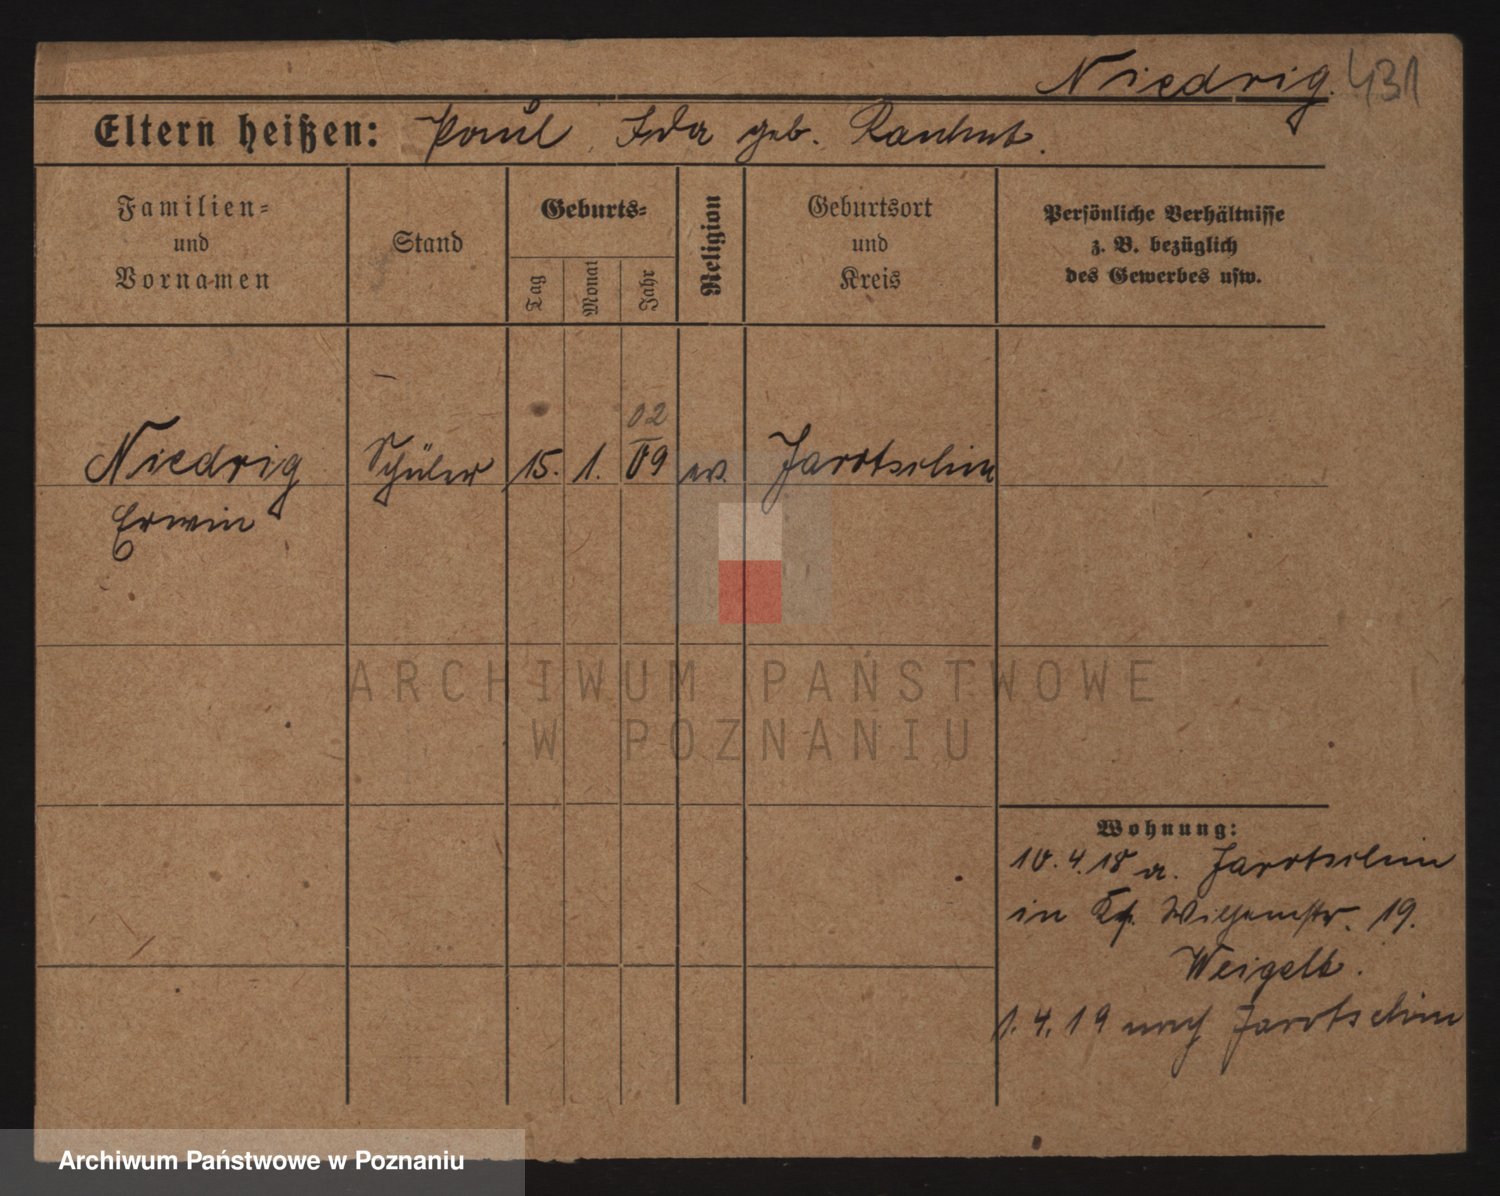 Niedrig. 431
Eltern heißen: Paul, Ida geb. Rauhut.
Familien-
und
Vornamen
Stand
Geburts-
Tag
Monat
Jahr
Religion
Geburtsort
und
Kreis
Persönliche Verhältnisse
z. B. bezüglich
des Gewerbes usw.
02
Niedrig Schüler 15. 1. 09 ev. Jarotschin
Erwin
ARCHIWUM PAŃSTWOWE
W POZNANIU
Wohnung:
10.4.18 a. Jarotschin
in 19.
Weigelt.
1.4.19 nach Jarotschin
Archiwum Państwowe w Poznaniu